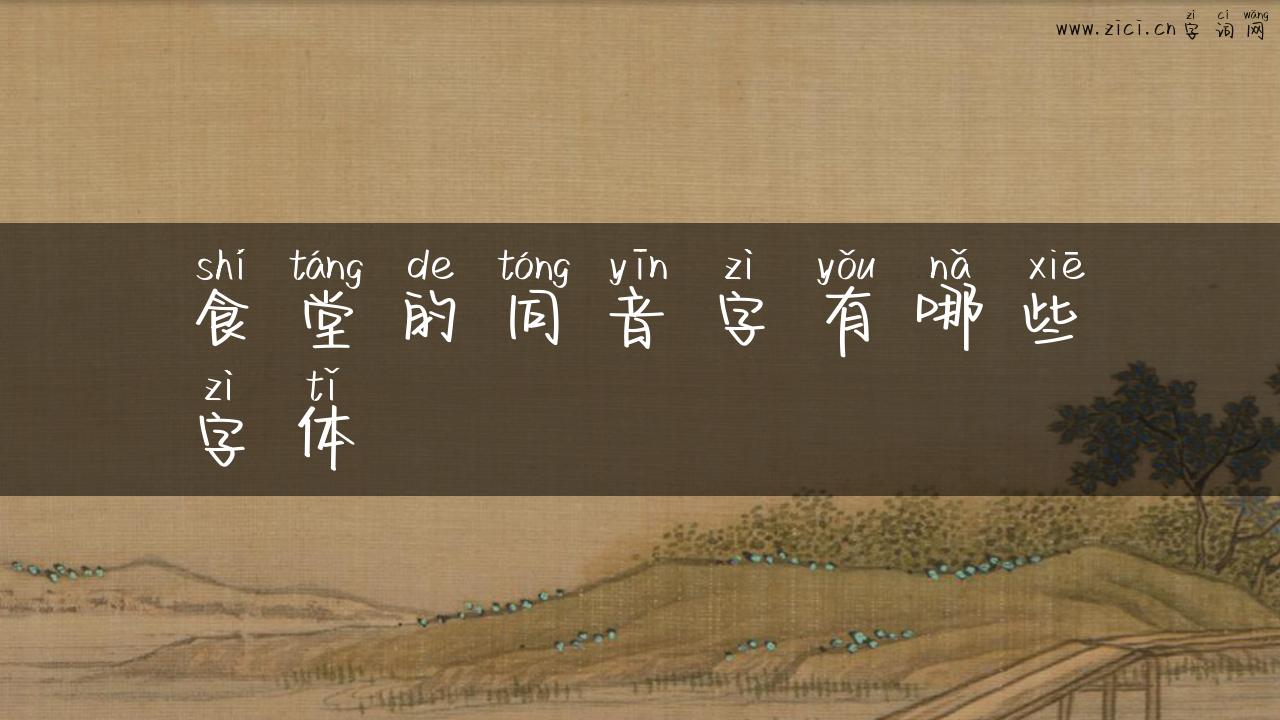 zì cí wǎng
www.zici.cn 字 词 网
shí táng de tóng yīn zì yǒu nǎ xiē
食 堂 的 同 音 字 有 哪 些
zì tǐ
字 体